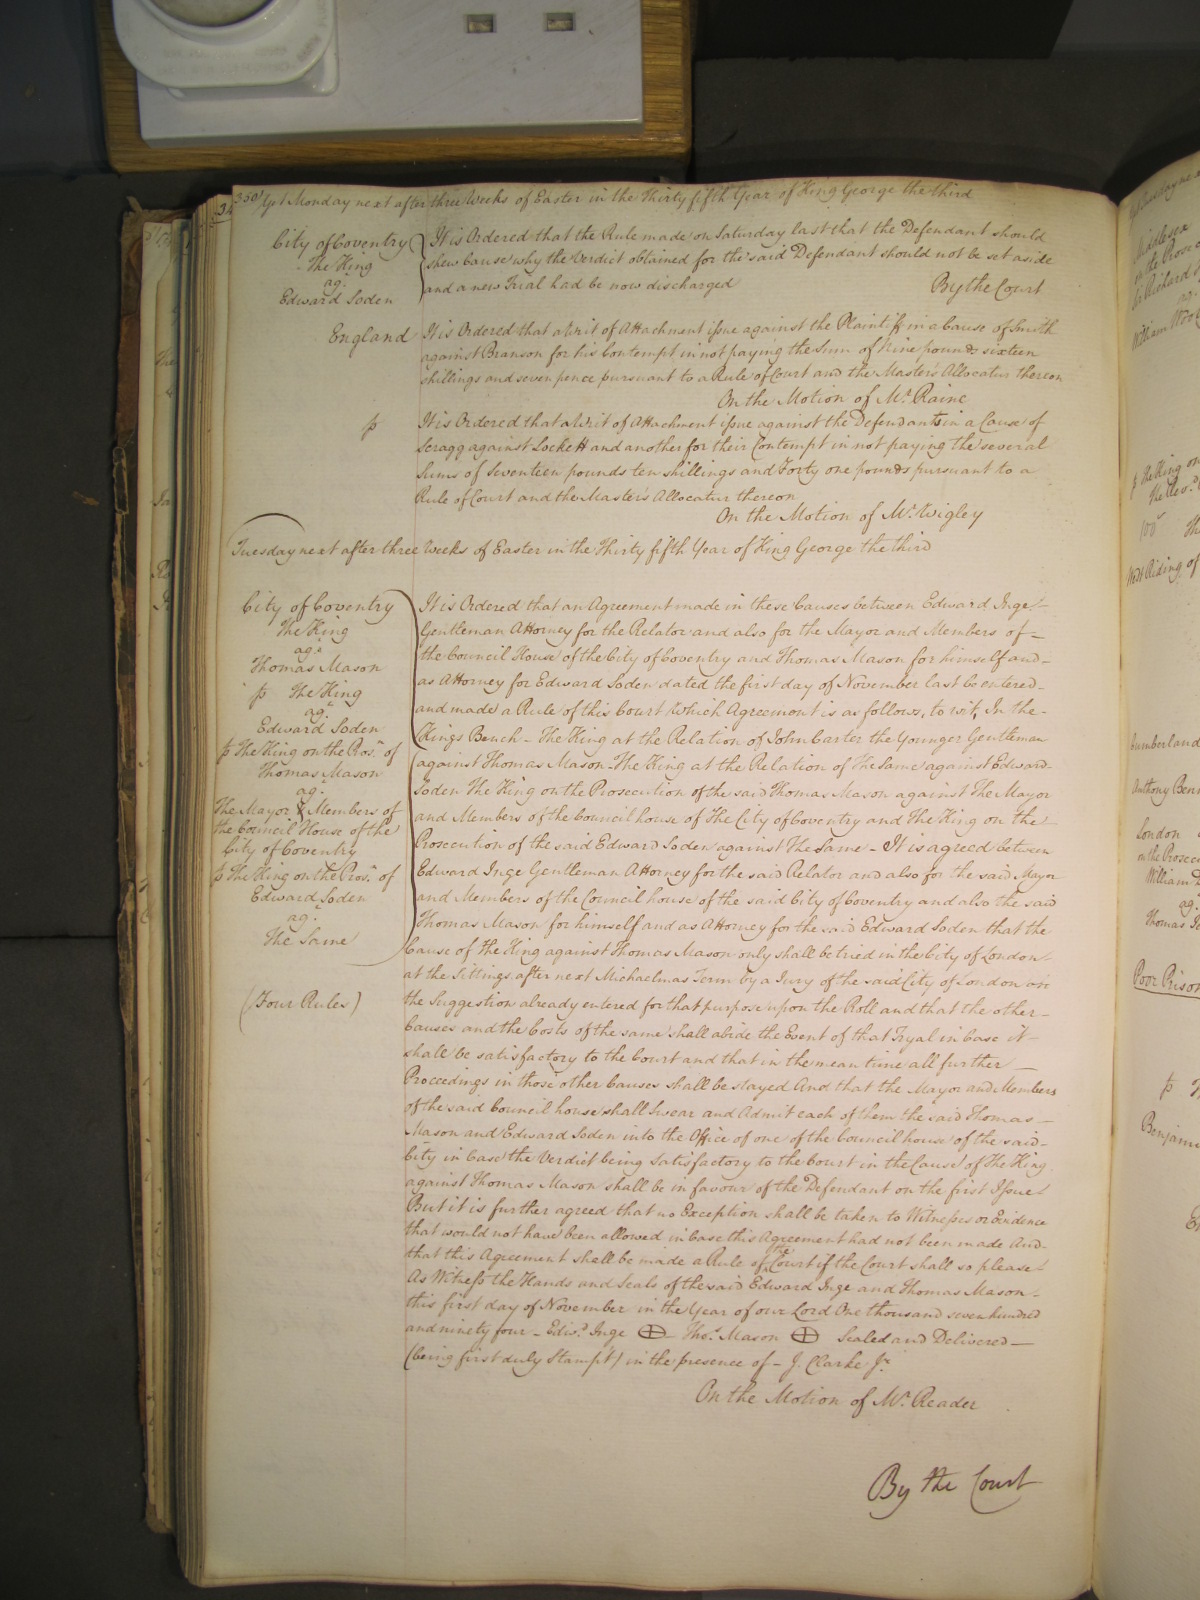 350 Yet Monday next after three Weeks of Easter in the Thirty fifth Year of King George the third
City of Coventry
The King
ag.t
Edward Soden
It is Ordered that the Rule made on Saturday last that the Defendant should
shew cause why the Verdict obtained for the said Defendant should not be set aside
and a new Trial had be now discharged
By the Court
England
It is Ordered that a Writ of Attachment issue against the Plaintiff in a Cause of Smith
against Branson for his Contempt in not paying the Sum of Nine pounds sixteen
shillings and seven pence pursuant to a Rule of Court and the Master's Allocatur thereon
On the Motion of Mr. Raine
It is Ordered that a Writ of Attachment issue against the Defendants in a Cause of
Scragg against Lockett and another for their Contempt in not paying the several
Sums of Seventeen pounds ten shillings and Forty one pounds pursuant to a
Rule of Court and the Master's Allocatur thereon
On the Motion of Mr. Wigley
Tuesday next after three Weeks of Easter in the Thirty fifth Year of King George the third
City of Coventry
The King
ag.t
Thomas Mason
p The King
ag.t
Edward Soden
p The King on the Pros.n of
Thomas Mason
ag.t
The Mayor & Members of
the Council House of the
City of Coventry
p The King on the Pros.n of
Edward Soden
ag.t
The Same
(Four Rules)
It is Ordered that an Agreement made in these Causes between Edward Inge
Gentleman Attorney for the Relator and also for the Mayor and Members of
the Council House of the City of Coventry and Thomas Mason for himself and
as Attorney for Edward Soden dated the first day of November last be entered
and made a Rule of this Court which Agreement is as follows, to wit, In the
Kings Bench – The King at the Relation of John Carter the Younger Gentleman
against Thomas Mason – The King at the Relation of The Same against Edward
Soden The King on the Prosecution of the said Thomas Mason against The Mayor
and Members of the Council house of The City of Coventry and The King on the
Prosecution of the said Edward Soden against The Same – It is agreed between
Edward Inge Gentleman Attorney for the said Relator and also for the said Mayor
and Members of the Council house of the said City of Coventry and also the said
Thomas Mason for himself and as Attorney for the said Edward Soden that the
Cause of The King against Thomas Mason only shall be tried in the City of London
at the Sittings after next Michaelmas Term by a Jury of the said City of London on
the Suggestion already entered for that purpose upon the Roll and that the other
Causes and the Costs of the same shall abide the Event of that Tryal in Case it
shall be satisfactory to the Court and that in the mean time all further
Proceedings in those other Causes shall be stayed And that the Mayor and Members
of the said Council house shall Swear and Admit each of them the said Thomas
Mason and Edward Soden into the Office of one of the Council house of the said
City in Case the Verdict being satisfactory to the Court in the Cause of The King
against Thomas Mason shall be in favour of the Defendant on the first Issue
But it is further agreed that no Exception shall be taken to Witnesses or Evidence
that would not have been allowed in Case this Agreement had not been made And
that this Agreement shall be made a Rule of the Court if the Court shall so please
As Witness the Hands and Seals of the said Edward Inge and Thomas Mason
this first day of November in the Year of our Lord One thousand seven hundred
and ninety four – Edw.d Inge Tho.s Mason Sealed and Delivered
(being first duly Stampt) in the presence of – J. Clarke Jr.
On the Motion of Mr. Reader
By the Court